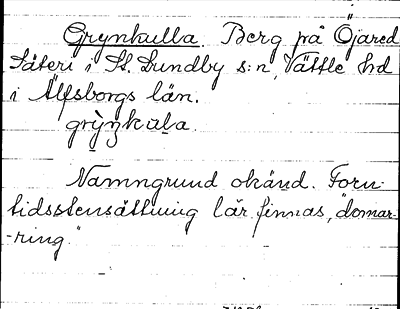 Grynkulla. Berg på Öjared
Säteri i St. Lundby s:n, Vättle hd
i Älfsborgs län.
grỳŋkula.
Namngrund okänd. Forn-
tidsstensättning lär finnas, "domar-
-ring."